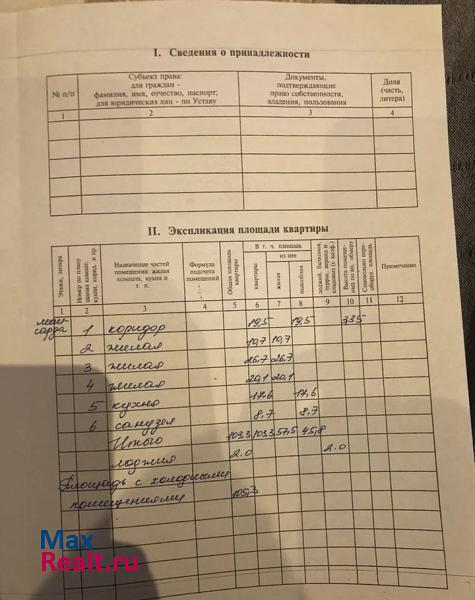 I. Сведения о принадлежности
№ п/п
Субъект права:
для граждан -
фамилия, имя, отчество, паспорт;
для юридических лиц - по Уставу
Документы,
подтверждающие
право собственности,
владения, пользования
Доля
(часть,
литера)
1 2 3 4
II. Экспликация площади квартиры
Этажи, литера
Номер по плану
Назначение частей
помещения: жилая
комната, кухня и
т. п.
Формула
подсчета
помещений
Общая площадь
квартиры
В т. ч. площадь
квартиры
из нее
жилая
подсобная
лоджий, балконов,
террас, веранд и
кладовых (с коэф.)
Высота помеще-
ний по вн. обмеру
Самовольно пере-
оборуд. площадь
Примечание
1 2 3 4 5 6 7 8 9 10 11 12
ман-
сарда
1 коридор 19,5 19,5
2 жилая 10,7 10,7
3 жилая 26,7 26,7
4 жилая 20,1 20,1
5 кухня 17,6 17,6
6 санузел 8,7 8,7
Итого 103,3 103,3 57,5 45,8
лоджия 2.0 2.0
Площадь с холодными
помещениями 105,3
Max
Realt.ru